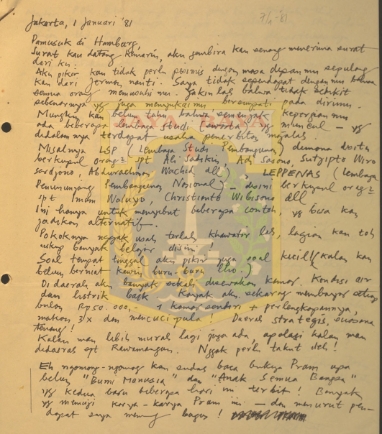 Jakarta, 1 Januari '81
Pamusuk di Hamburg,
Surat kau datang kemarin, aku gembira dan senang menerima surat
dari ku.
Aku pikir kau tidak perlu pusing dengan masa depanmu sepulang
kau dari Jerman nanti. Saya tidak sependapat dengan mu bahwa
semua orang memusuhi mu. Yakin lah bahwa tidak sedikit
sebenarnya yg juga bersimpati pada dirimu.
Mungkin kau belum tahu bahwa semenjak kepergianmu
ada beberapa lembaga studi yg muncul - yg
didalamnya terdapat usaha penerbitan majalah.
Misalnya LSP (Lembaga Studi Pembangunan) dimana disitu
berkumpul orang2 spt Ali Sadikin, Adi Sasono, Sutjipto Wiro
sardjono, Abdurrahman Wachid dll. LEPPENAS (Lembaga
Penunjang Pembangunan Nasional) - disini berkumpul orang2
spt Imam Waluyo, Christianto Wibisono dll.
Ini hanya untuk menyebut beberapa contoh, yg bisa kau
jadikan alternatif.
Pokoknya nggak usah terlalu khawatir lah, lagian kau toh
cukup banyak belajar disini.
Soal tempat tinggal aku pikir juga soal kecil (kalau kau
belum berniat kawin buru-buru lho).
Di daerah aku banyak sekali disewakan kamar. Kondisi air
dan listrik baik. Kayak aku sekarang membayar setiap
bulan Rp 50.000, - 1 kamar sendiri + perlengkapannya,
makan 3x dan mencuci pula. Daerah strategis, suasana
tenang!
Kalau mau lebih murah lagi juga ada, apalagi kalau mau
didaerah spt Rawamangun. Nggak perlu takut deh!
Eh ngomong-ngomong kau sudah baca bukunya Pram apa
belum "Bumi Manusia" dan "Anak Semua Bangsa"
yg kedua baru beberapa hari ini terbit! Banyak
yg memuji karya-karya Pram ini - dan menurut pen-
dapat saya memang bagus!